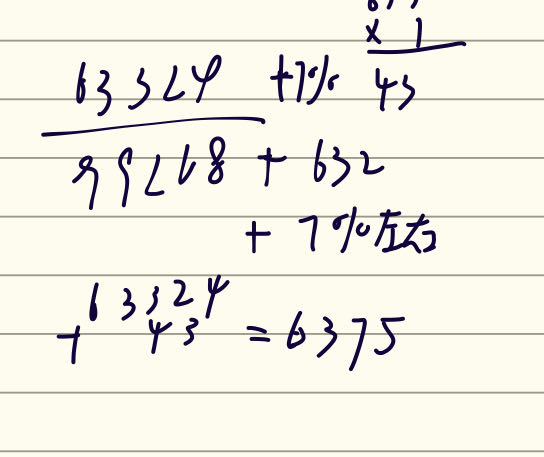 × 1
63324 +7% 43
99268 + 632
+ 7%左右
63324
+ 43 = 6375